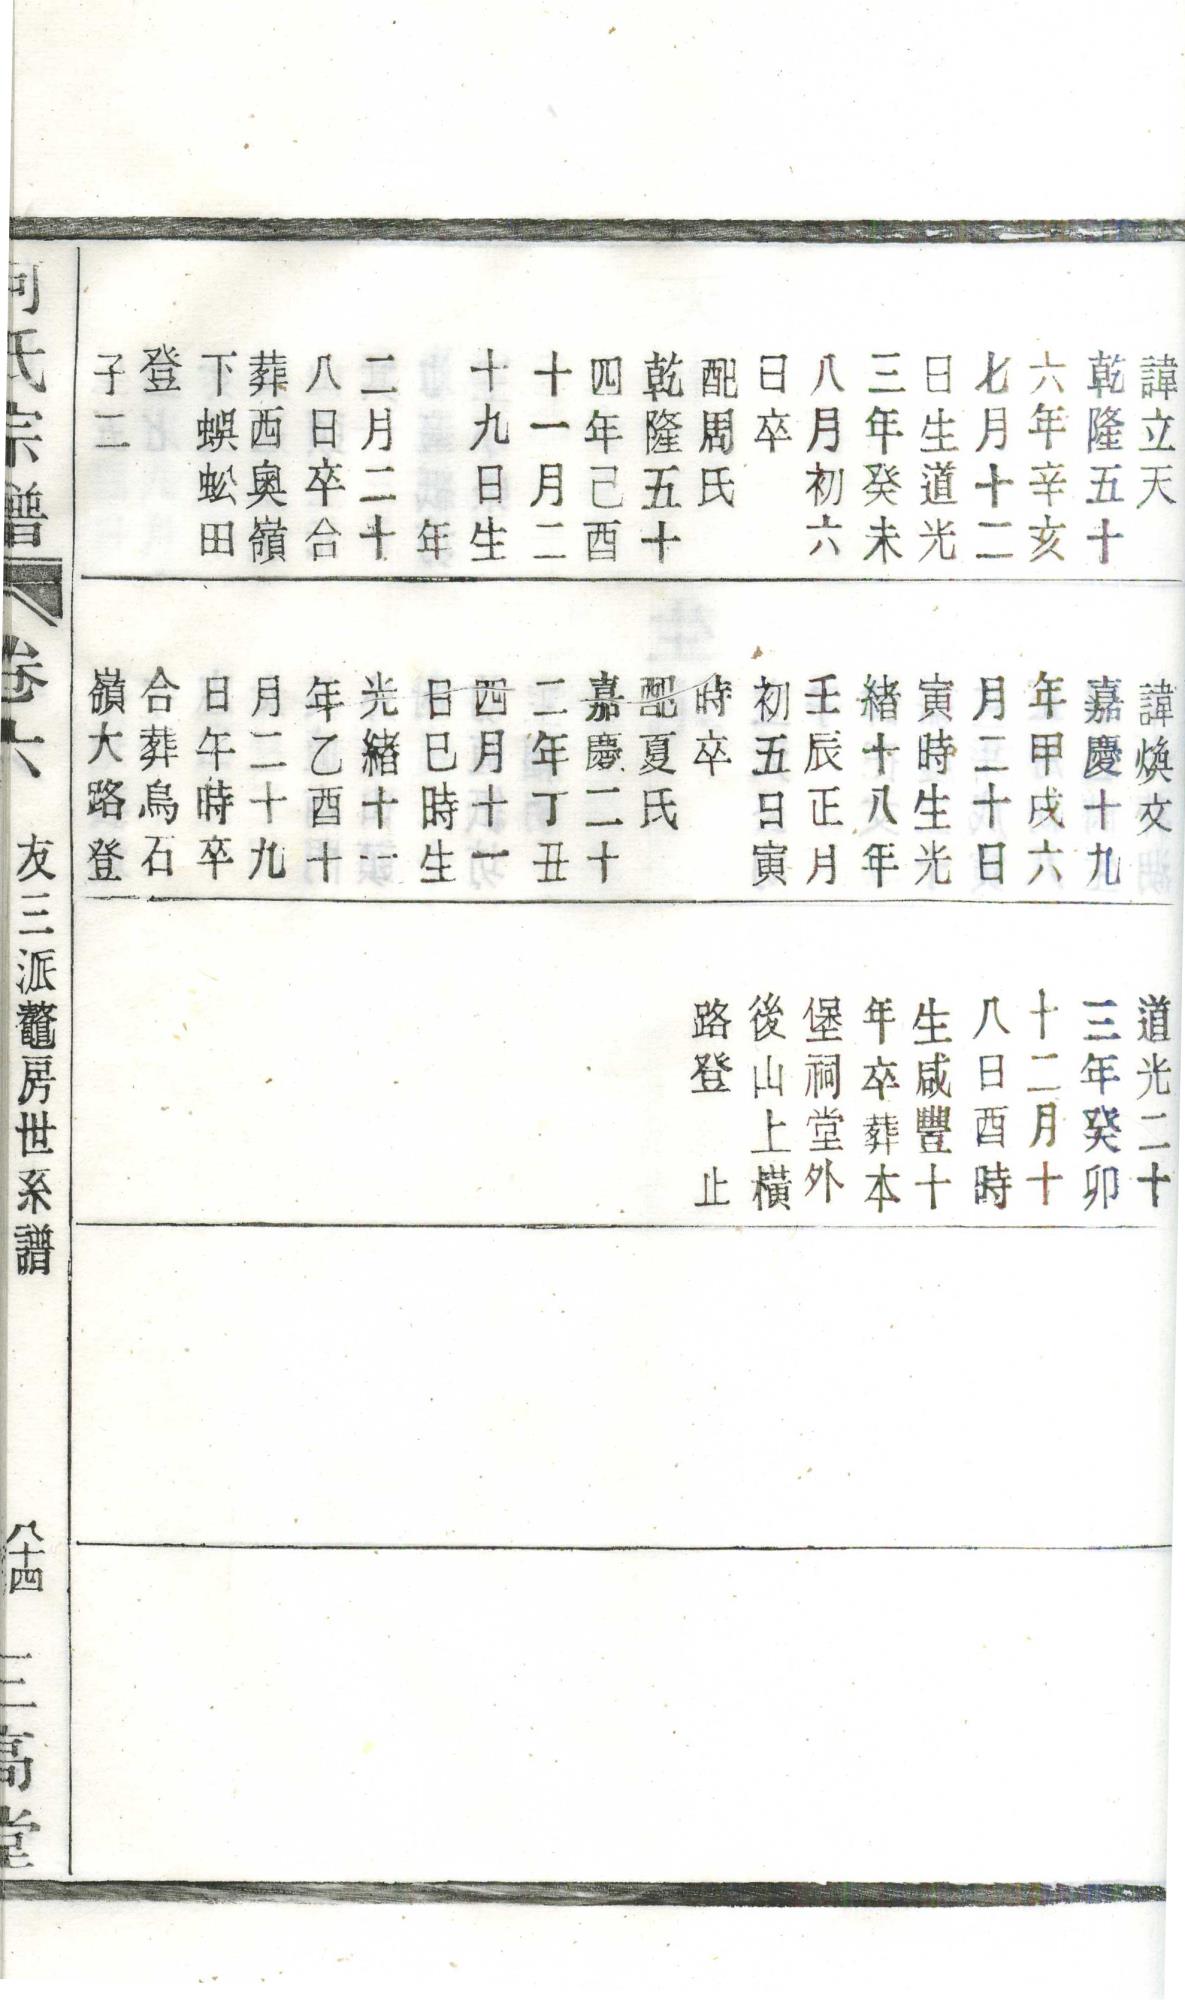 諱立天
乾隆五十
六年辛亥
七月十二
日生道光
三年癸未
八月初六
日卒
配周氏
乾隆五十
四年己酉
十一月二
十九日生
年
二月二十
八日卒合
葬西奧嶺
下蜈蚣田
登
子二
諱煥文
嘉慶十九
年甲戌六
月二十日
寅時生光
緒十八年
壬辰正月
初五日寅
時卒
配夏氏
嘉慶二十
二年丁丑
四月十一
日巳時生
光緒十一
年乙酉十
月二十九
日午時卒
合葬烏石
嶺大路登
道光二十
三年癸卯
十二月十
八日酉時
生咸豐十
年卒葬本
堡祠堂外
後山上橫
路登 止
何氏宗譜 卷六 友三派鼇房世系譜 八十四 三高堂